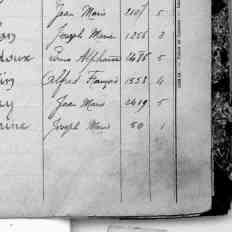 Jean Marie 2107 5
on Joseph Marie 1256 3
doux Alphonse 1476 5
in Alfred François 1558 4
y Jean Marie 2419 5
rine Joseph Marie 50 1